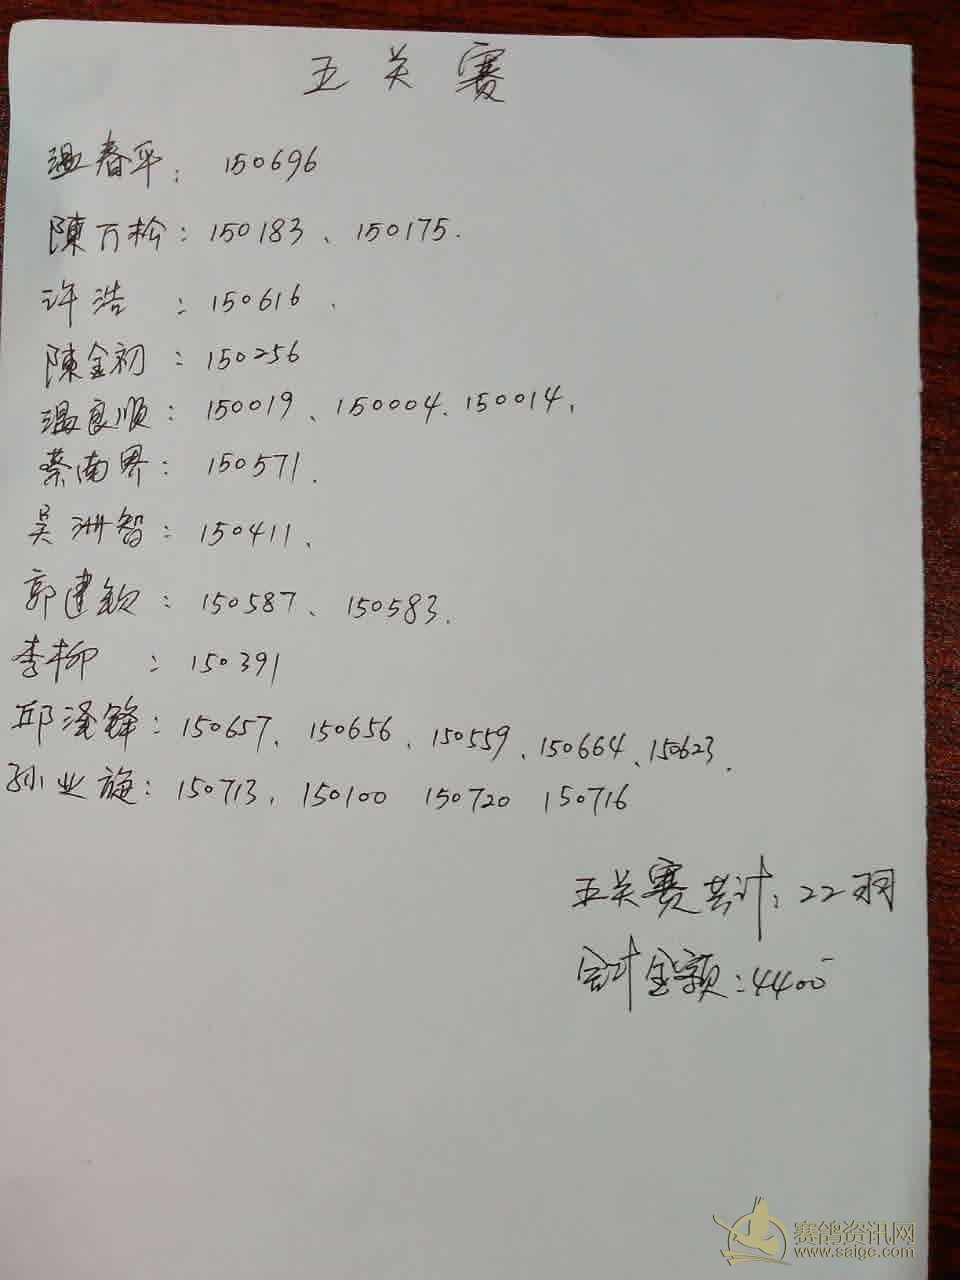 五关赛
温春平：150696
陳万松：150183、150175.
许浩：150616.
陳金初：150256
温良顺：150019、150004、150014,
蔡南界：150571.
吴洲智：150411、
郭建钦：150587、150583.
李柳：150391
邱泽锋：150657、150656、150559、150664、150623.
孙业旋：150713, 150100 150720 150716
五关赛共计：22羽
合计金额：4400
赛鸽资讯网
www.saige.com